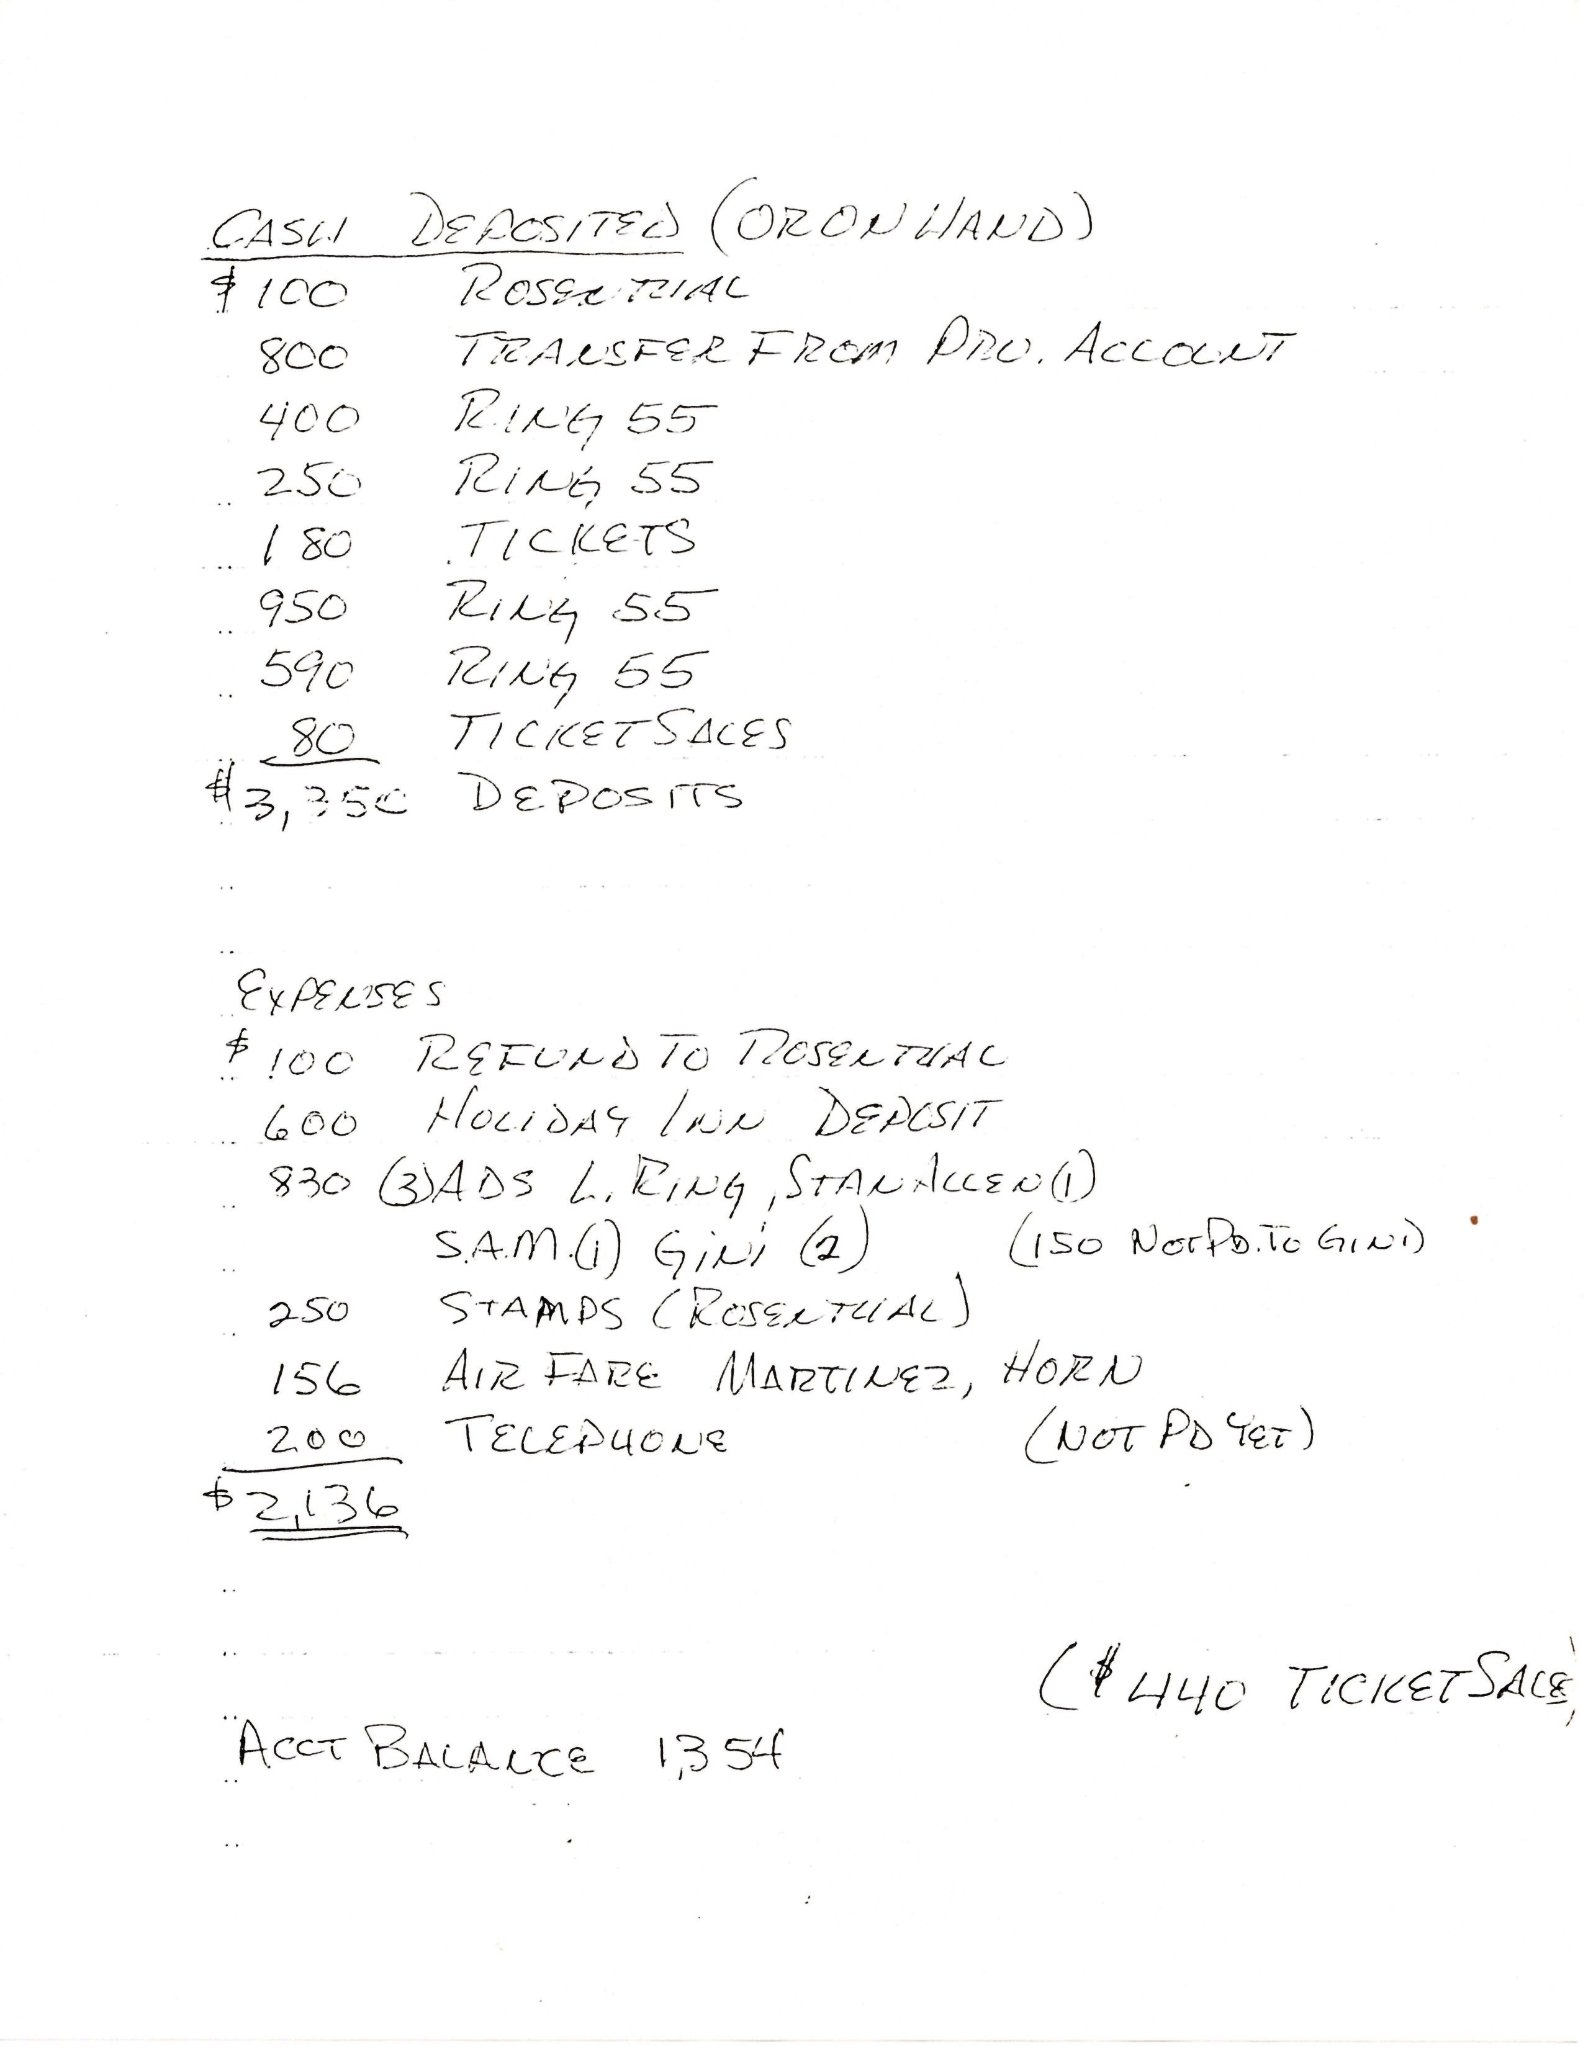 CASH DEPOSITED (OR ON HAND)
$ 100 ROSENTHAL
800 TRANSFER FROM DIV. ACCOUNT
400 RING 55
250 RING 55
180 TICKETS
950 RING 55
590 RING 55
80 TICKET SALES
$ 3,350 DEPOSITS
EXPENSES
$ 100 REFUND TO ROSENTHAL
600 HOLIDAY INN DEPOSIT
830 (3) ADS L. RING, STAN ALLEN (1)
S.A.M. (1) GINI (2) (150 NOT PD. TO GINI)
250 STAMPS (ROSENTHAL)
156 AIR FARE MARTINEZ, HORN
200 TELEPHONE (NOT PD YET)
$ 2,136
($ 440 TICKET SALE)
ACCT BALANCE 1,354